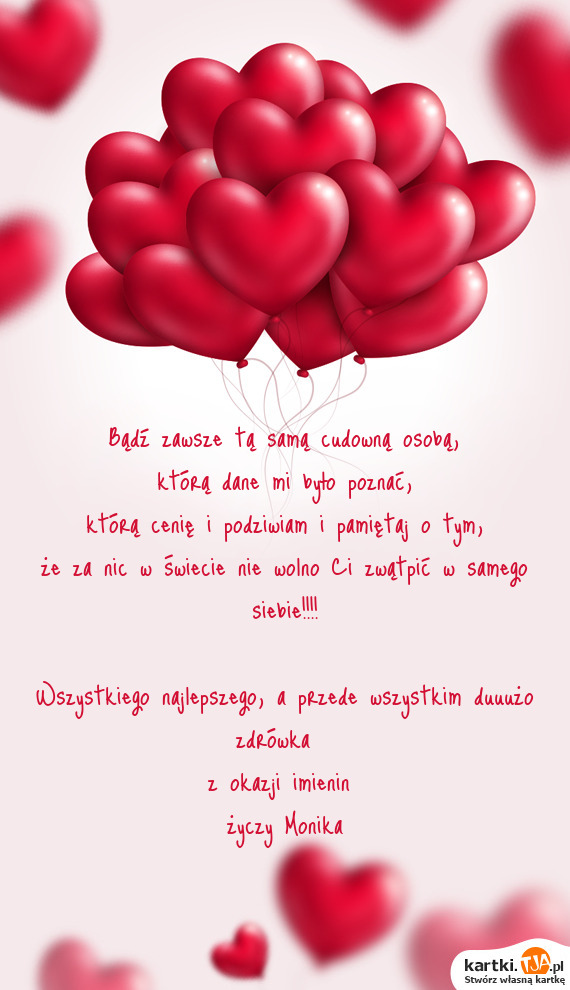 Bądź zawsze tą samą cudowną osobą,
którą dane mi było poznać,
którą cenię i podziwiam i pamiętaj o tym,
że za nic w świecie nie wolno Ci zwątpić w samego
siebie!!!!
Wszystkiego najlepszego, a przede wszystkim duuużo
zdrówka
z okazji imienin
życzy Monika
kartki.TJA.pl
Stwórz własną kartkę